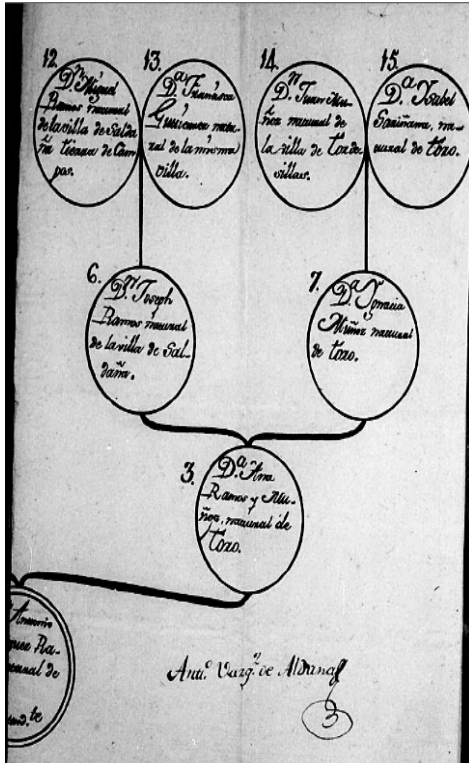 12.
D.ⁿ Miguel
Ramos natural
de la villa de Salda
ña tierra de Cam
pos.
13.
D.ª Fran.ca
natu
ral de la misma
villa.
14.
D.ⁿ Juan Mu-
ñoz natural de
la villa de Torde
sillas.
15.
D.ª Ysabel
na-
tural de Toro.
6.
D.ⁿ Joseph
Ramos natural
de la villa de Sal-
daña.
7.
D.ª Ygnacia
Muñoz natural
de Toro.
3.
D.ª Ana
Ramos y Mu-
ñoz, natural de
Toro.
Antonio
quez Ra-
tural de
Ant.º Varg.ˢ de Aldana
3